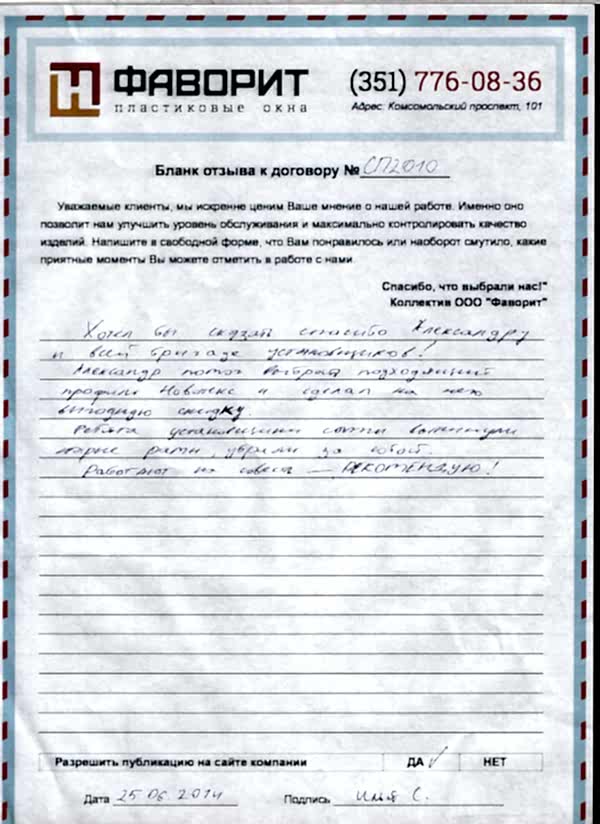 ФАВОРИТ
пластиковые окна
(351) 776-08-36
Адрес: Комсомольский проспект, 101
Бланк отзыва к договору № СП2010
Уважаемые клиенты, мы искренне ценим Ваше мнение о нашей работе. Именно оно
позволит нам улучшить уровень обслуживания и максимально контролировать качество
изделий. Напишите в свободной форме, что Вам понравилось или наоборот смутило, какие
приятные моменты Вы можете отметить в работе с нами.
Спасибо, что выбрали нас!"
Коллектив ООО "Фаворит"
Хотел бы сказать спасибо Александру
и всей бригаде установщиков!
Александр помог выбрать подходящий
профиль Новотекс и сделал на него
выгодную скидку
Ребята установщики
рамы, убрали за собой.
Работают на совесть — РЕКОМЕНДУЮ!
Разрешить публикацию на сайте компании ДА ✓ НЕТ
Дата 25 06. 2014 Подпись Илья С.